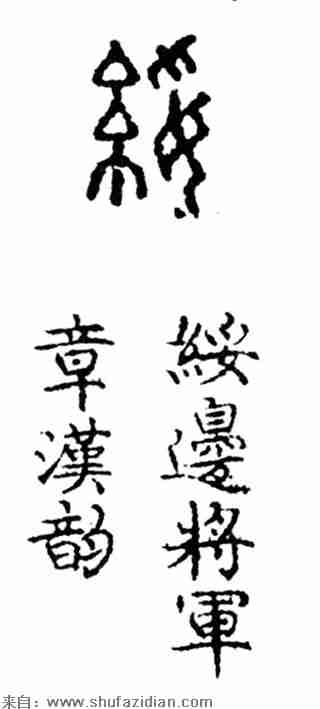 綏
綏邊將軍
章漢韵
来自：www.shufazidian.com